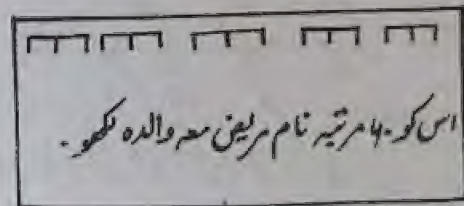 اس کو مرتبہ نام مریض معہ والدہ لکھو۔